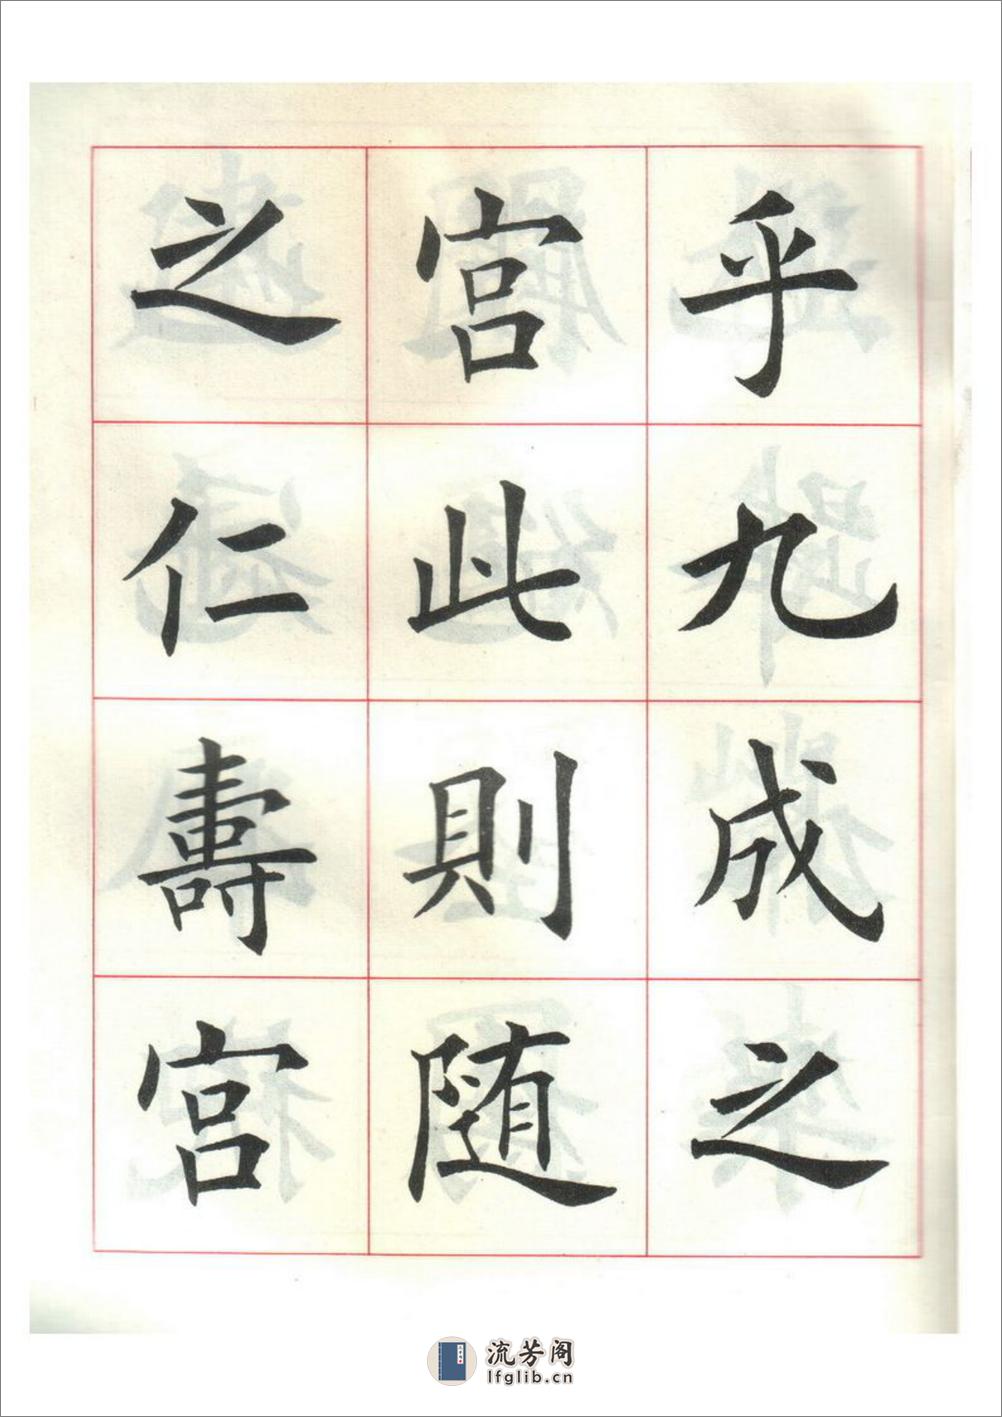 乎九成之
宫此則随
之仁壽宫
流芳阁
lfglib.cn